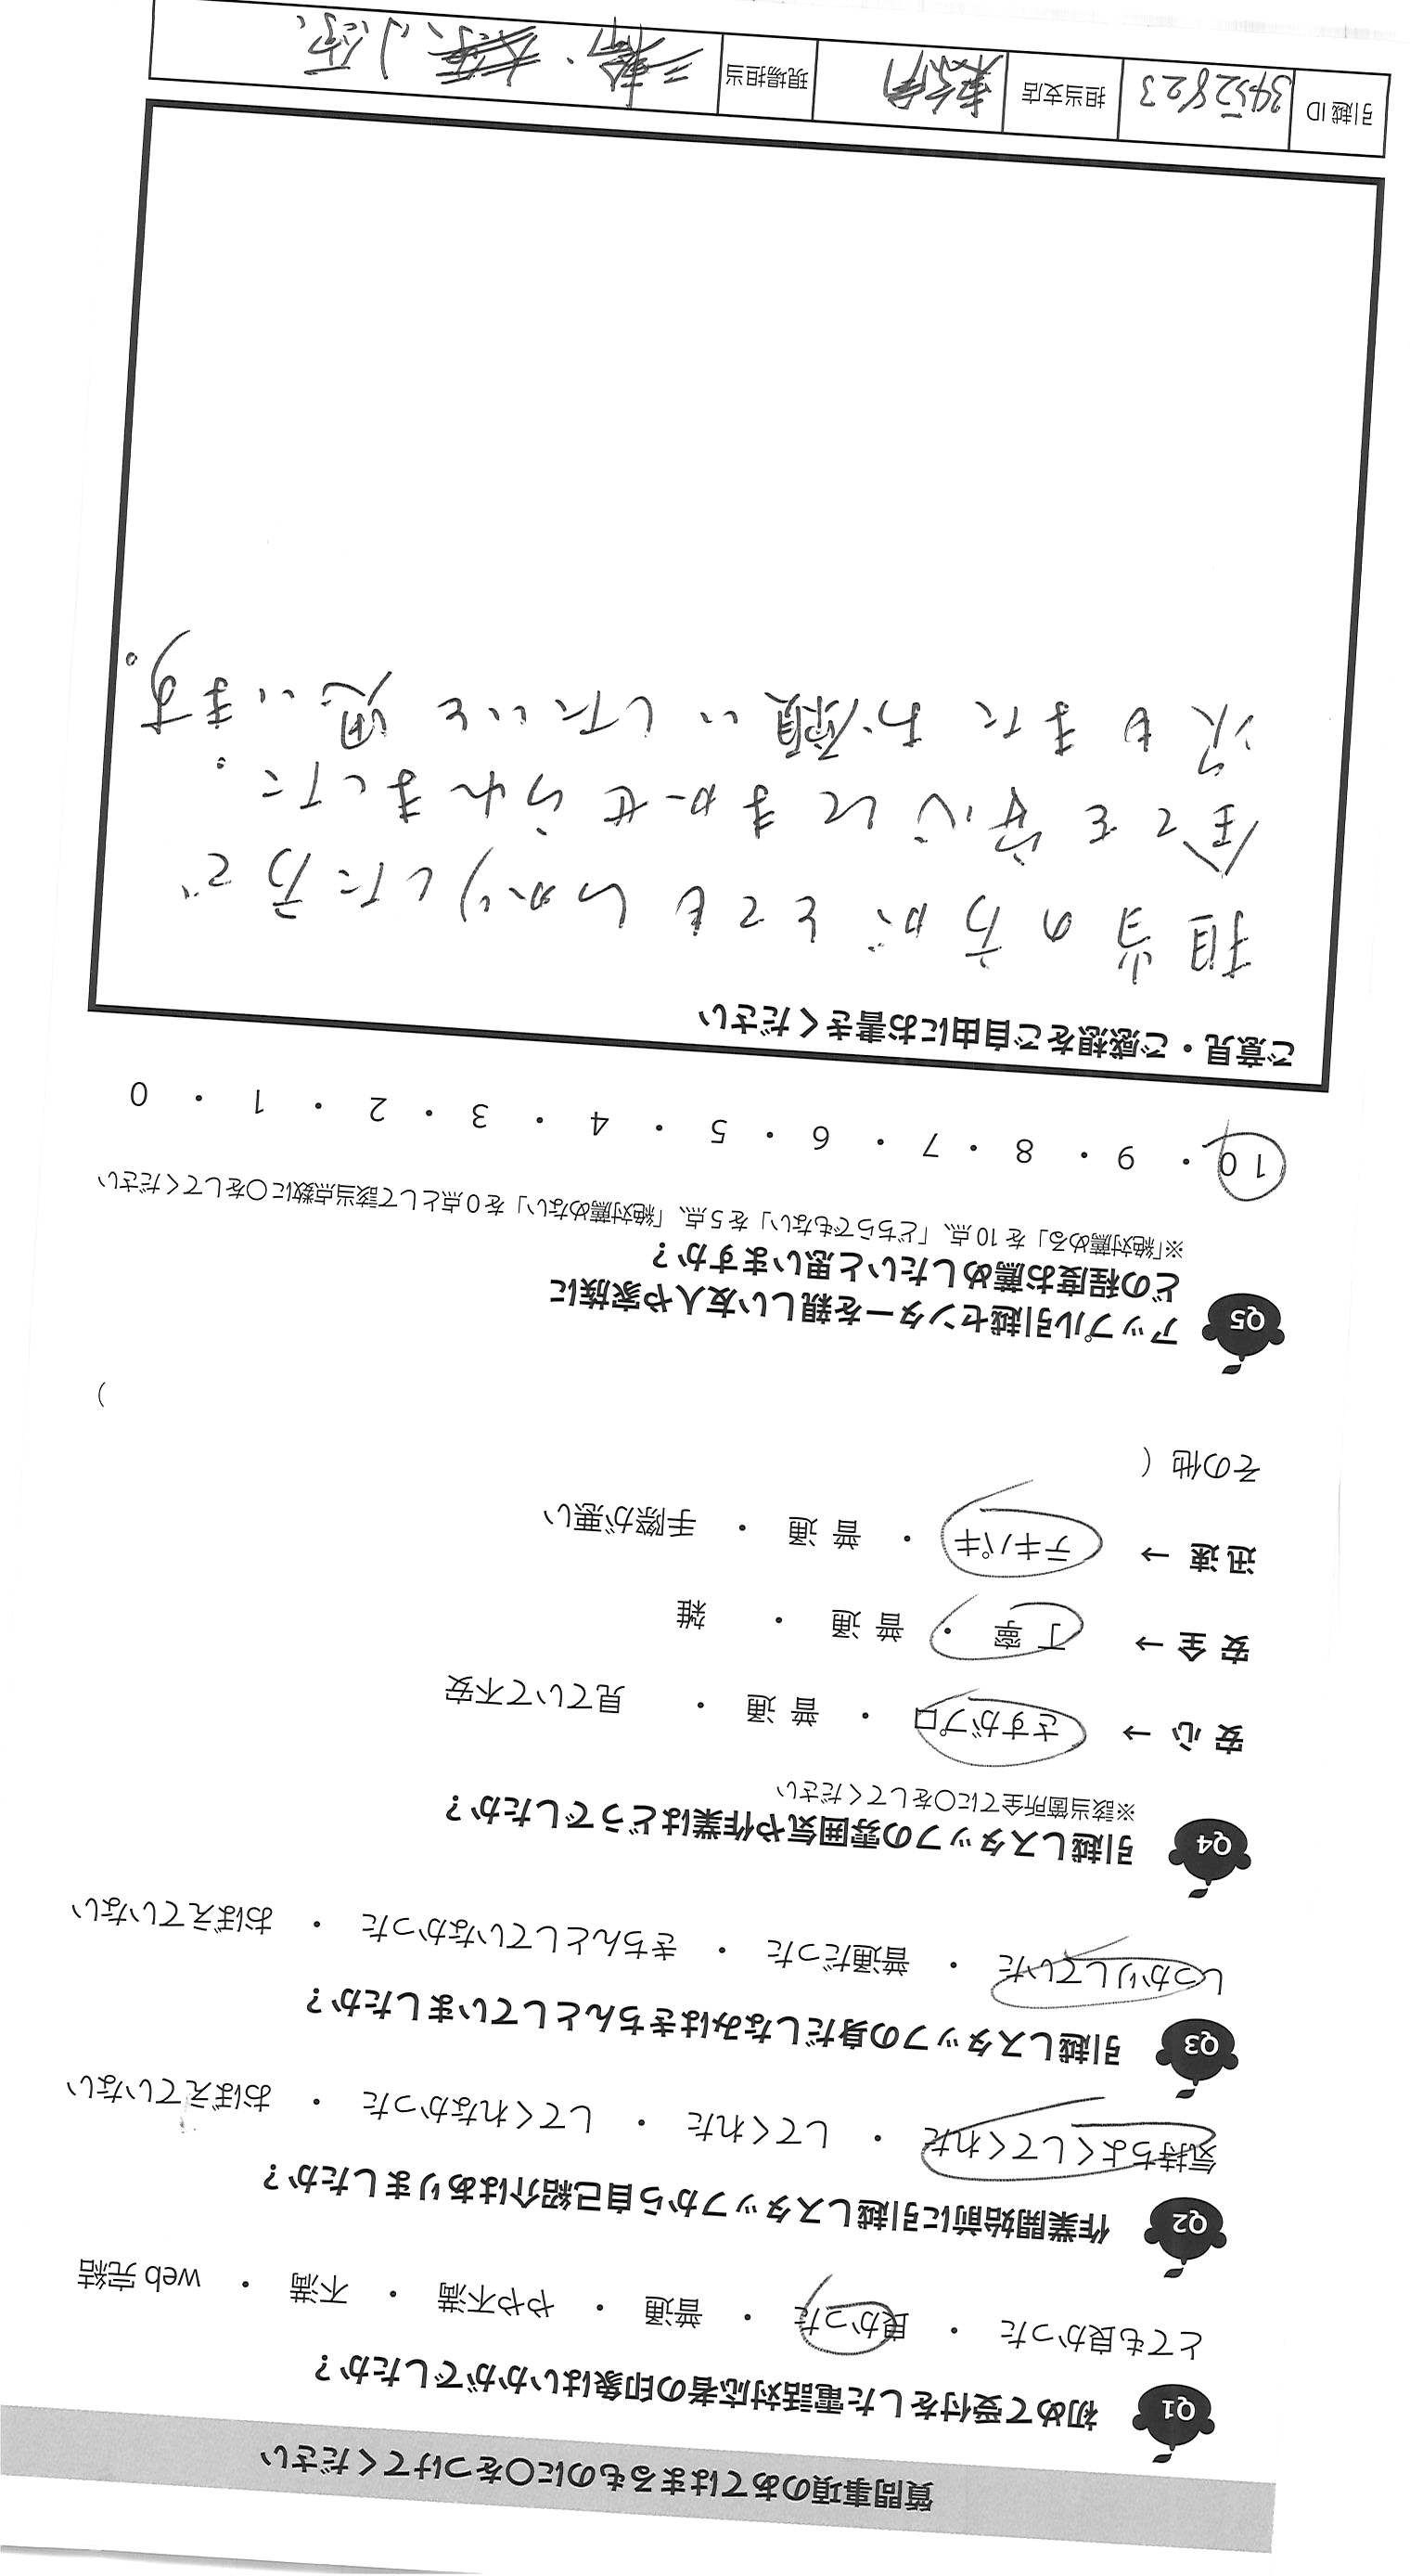 質問事項のあてはまるものに〇をつけてください
Q1 初めて受付をした電話対応者の印象はいかがでしたか？
とても良かった ・ 良かった ・ 普通 ・ やや不満 ・ 不満 ・ web 完結
Q2 作業開始前に引越しスタッフから自己紹介はありましたか？
気持ちよくしてくれた ・ してくれた ・ してくれなかった ・ おぼえていない
Q3 引越しスタッフの身だしなみはきちんとしていましたか？
しっかりしていた ・ 普通だった ・ きちんとしていなかった ・ おぼえていない
Q4 引越しスタッフの雰囲気や作業はどうでしたか？
※該当箇所全てに〇をしてください
安心 → さすがプロ ・ 普通 ・ 見ていて不安
安全 → 丁寧 ・ 普通 ・ 雑
迅速 → テキパキ ・ 普通 ・ 手際が悪い
その他（ ）
Q5 アップル引越センターを親しい友人や家族に
どの程度お薦めしたいと思いますか？
※「絶対薦める」を 10 点、「どちらでもない」を 5 点、「絶対薦めない」を 0 点として該当点数に〇をしてください
10 ・ 9 ・ 8 ・ 7 ・ 6 ・ 5 ・ 4 ・ 3 ・ 2 ・ 1 ・ 0
ご意見・ご感想をご自由にお書きください
担当の方がとてもしっかりした方で
全てを安心してまかせられました。
次もまたお願いしたいと思います。
引越 ID 3452823 担当支店 現場担当